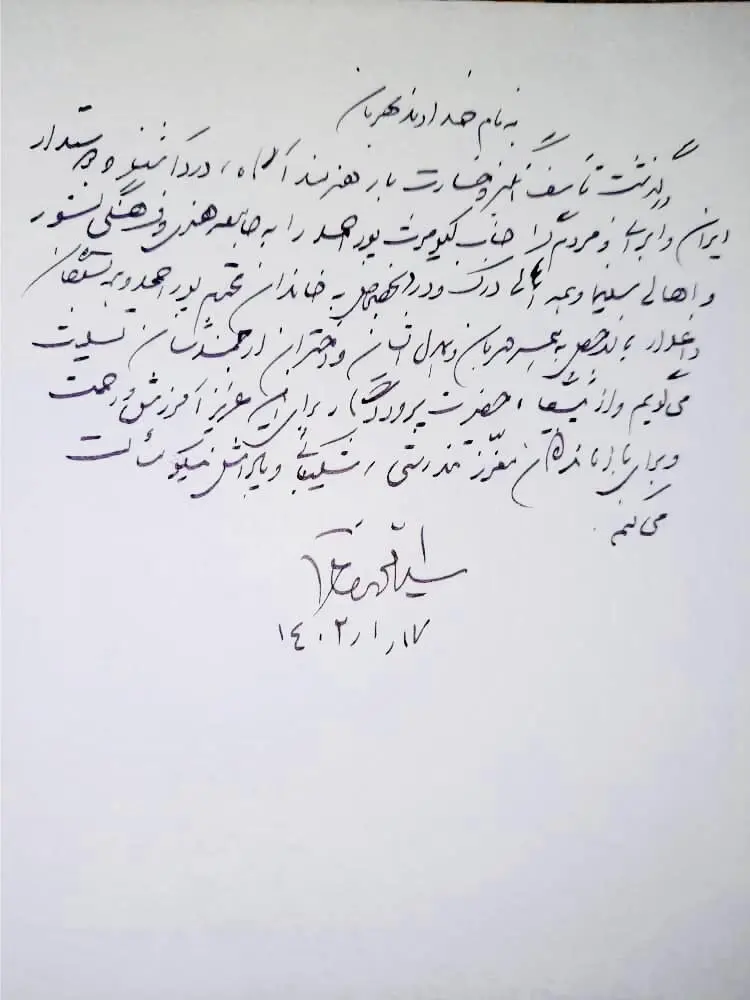 به نام خداوند مهربان
درگذشت تأسف انگیز و خسارت بار هنرمند آگاه، درد آشنا و دوستدار
ایران و ایرانی و مردم گرا جناب کیومرث پوراحمد را به جامعه هنری و فرهنگی کشور
و اهالی سینما و همه اهالی درک و درد بخصوص به خاندان محترم پوراحمد و همه بستگان
داغدار بالاخص به همسر مهربان و دختران ارجمندشان تسلیت
می‌گویم و از پیشگاه حضرت پروردگار برای آن عزیز آمرزش و رحمت
و برای بازماندگان معزز تندرستی، شکیبائی و پاداش نیکو مسألت
می‌کنم.
سید محمد خاتمی
۱۷ر۱ر۱۴۰۲